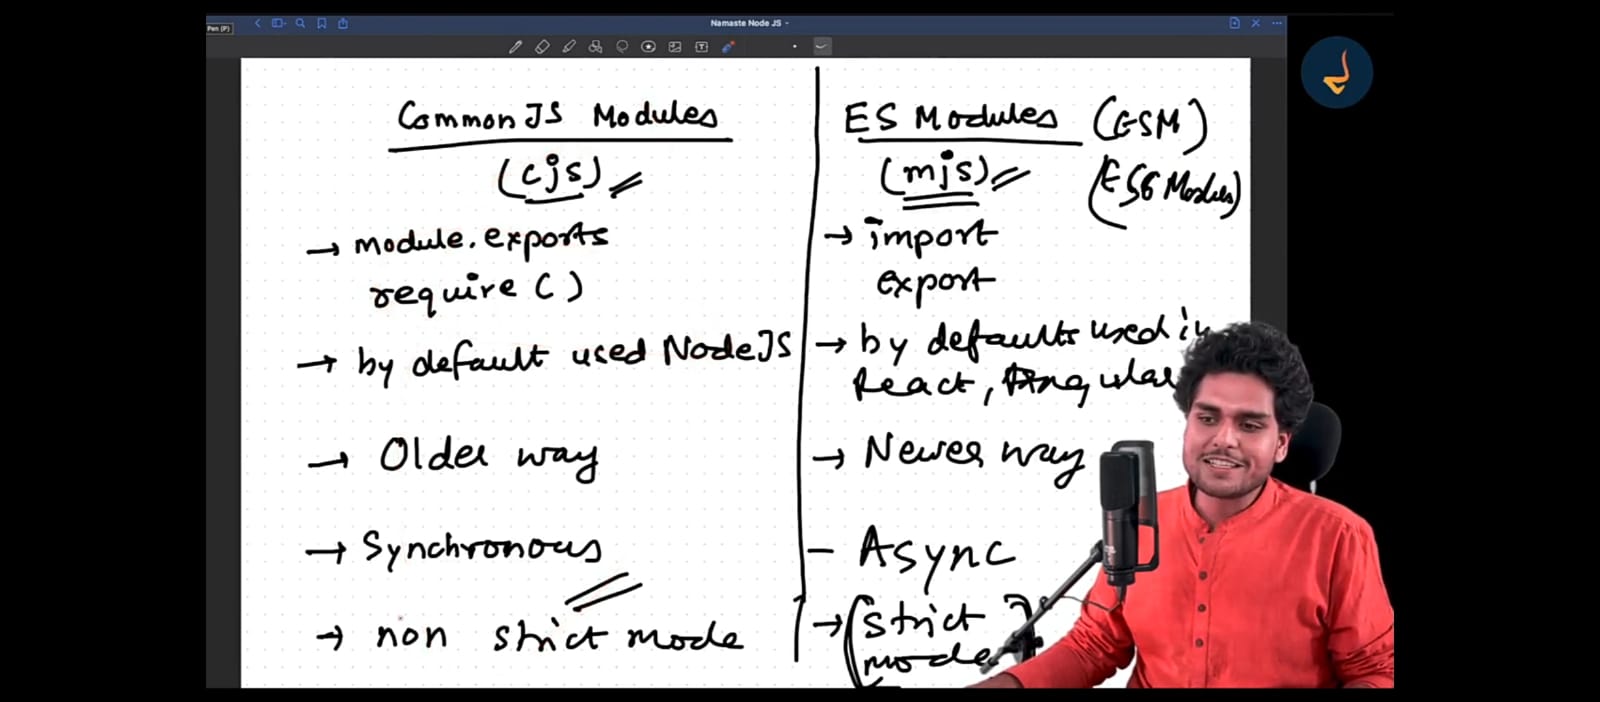 Pen (P)
Namaste Node JS
CommonJS Modules
(cjs)
→ module.exports
require ( )
→ by default used NodeJS
→ Older way
→ Synchronous
→ non strict mode
ES Modules (ESM)
(mjs) (ES6 Modules)
→ import
export
→ by default used in
React, Angular
→ Newer way
– Async
→ (strict
mode)